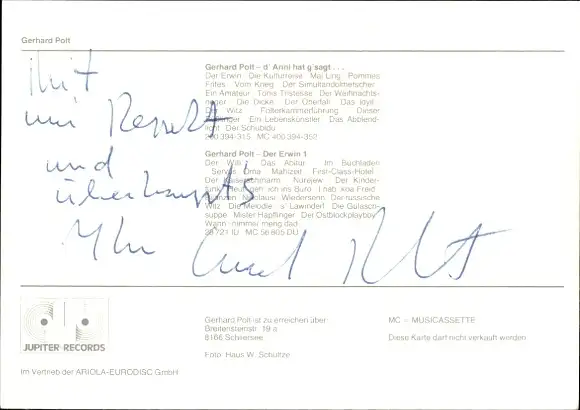 Gerhard Polt
Mit
und
Gerhard Polt – d' Anni hat g'sagt . . .
Der Erwin Die Kulturreise Mai Ling Pommes
Frites Vom Krieg Der Simultandolmetscher
Ein Amateur Toms Tristesse Der Weihnachts-
Die Dicke Der Überfall Das Idyll
Der Witz Dieser
Ein Lebenskünstler Das Abblend-
licht Der Schubidu
200 394-315 MC 400 394-352
Gerhard Polt – Der Erwin 1
Der Willi Das Abitur Im Buchladen
Oma Mahlzeit First-Class-Hotel
Nurejew Der Kinder-
ins Büro I hab koa Freid
Nikolausi Wiedersehn Der russische
Witz Die Melodie Die Gulasch-
suppe Mister Hapflinger Der Ostblockplayboy
Wann nimmer meng dad
MC 56 805 DU
Gerhard Polt
JUPITER RECORDS
Im Vertrieb der ARIOLA-EURODISC GmbH
Gerhard Polt ist zu erreichen über
Breitensteinstr. 19 a
8166 Schliersee
Foto: Haus W. Schultze
MC – MUSICASSETTE
Diese Karte darf nicht verkauft werden